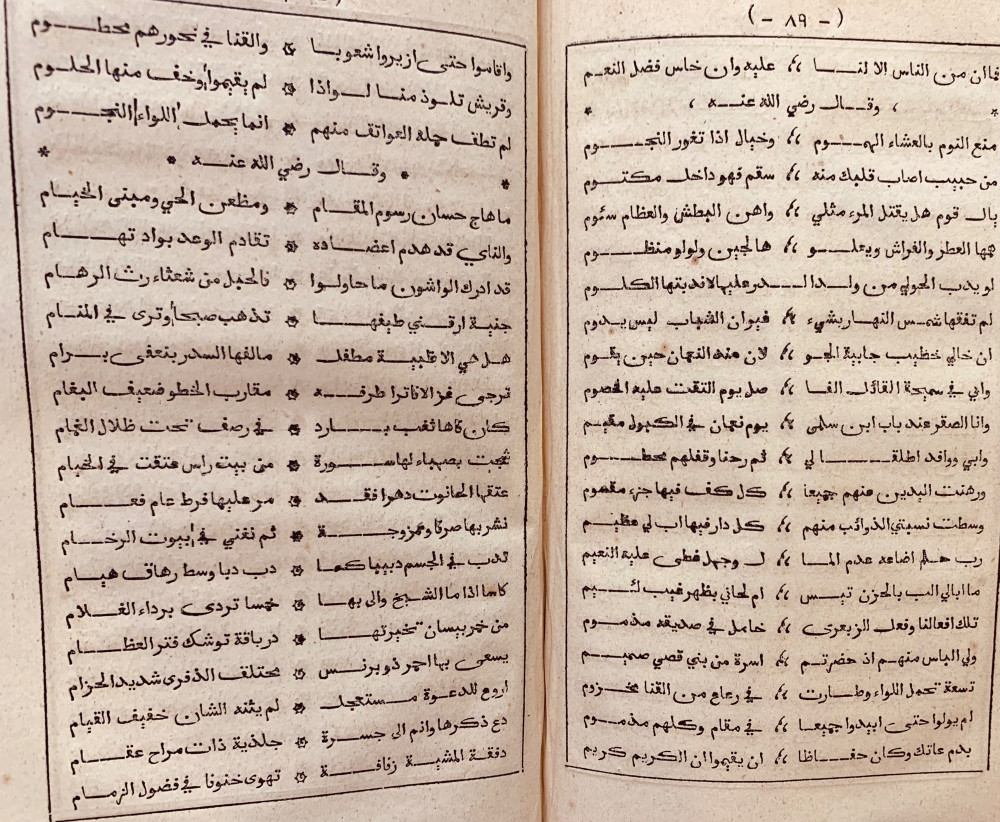 ( - ٨٩ - )
فاان من الناس الا لنا ؛ عليه وان خاس فضل النعم
* ، وقال رضي الله عنه ، *
منع النوم بالعشاء الهموم ؛ وخيال اذا تغور النجوم
من حبيب اصاب قلبك منه ؛ سقم فهو داخل مكتوم
يال قوم هل يقتل المرء مثلي ؛ واهن البطش والعظام سئوم
همها العطر والفراش ويعلو ؛ ها لجين ولولو منظوم
لو يدب الحولي من ولد الدر عليها لاندبتها الكلوم
لم تفقها شمس النهار بشيء ؛ غير ان الشباب ليس يدوم
ان خالي خطيب جابية الجو ؛ لان عند النعمان حين يقوم
وابي في سميحة القائل الفا ؛ صل يوم التقت عليه الخصوم
وانا الصقر عند باب ابن سلمى ؛ يوم نعمان في الكبول مقيم
وابي ووافد اطلقا لي ؛ ثم رحنا وقفلهم محطوم
ورهنت اليدين عنهم جميعا ؛ كل كف فيها جزء مقسوم
وسطت نسبتي الذوائب منهم ؛ كل دار فيها اب لي عظيم
رب حلم اضاعه عدم الما ؛ ل وجهل غطى عليه النعيم
ما ابالي انب بالحزن تيس ؛ ام لحاني بظهر غيب لئيم
تلك افعالنا وفعل الزبعرى ؛ خامل في صديقه مذموم
ولي الباس منهم اذ حضرتم ؛ اسرة من بني قصي صميم
تسعة تحمل اللواء وطارت ؛ في رعاع من القنا مخزوم
لم يولوا حتى ابيدوا جميعا ؛ في مقام وكلهم مذموم
بدم عاتك وكان حفاظا ؛ ان يقيموا ان الكريم كريم
واقاموا حتى ازيروا شعوبا * والقنا في نحورهم محطوم
وقريش تلوذ منا لواذا * لم يقيموا وخف منها الحلوم
لم تطف حمله العواتق منهم * انما يحمل اللواء النجوم
* * وقال رضي الله عنه * *
ما هاج حسان رسوم المقام * ومظعن الحي ومبنى الخيام
والناي قد هدم اعضاده * تقادم العهد بواد تهام
قد ادرك الواشون ما حاولوا * فالحبل من شعثاء رث الرمام
جنية ارقني طيفها * تذهب صبحا وترى في المنام
هل هي الا ظبية مطفل * مالفها السدر بنعفى برام
ترجى غزالا فاترا طرفه * مقارب الخطو ضعيف البغام
كان فاها ثغب بارد * في رصف تحت ظلال الغمام
شجت بصهباء لها سورة * من بيت راس عتقت في الخيام
عتقها الحانوت دهرا فقد * مر عليها فرط عام فعام
نشربها صرفا وممزوجة * ثم نغني في بيوت الرخام
تدب في الجسم دبيبا كما * دب دبا وسط رقاق هيام
كاسا اذا ما الشيخ والى بها * خمسا تردى برداء الغلام
من خمر بيسان تخيرتها * درياقة توشك فتر العظام
يسعى بها احمر ذو برنس * مختلق الذفرى شديد الحزام
اروع للدعوة مستعجل * لم يثنه الشان خفيف القيام
دع ذكرها وانم الى جسرة * جلذية ذات مراح عقام
دفقة المشية زفافة * تهوى خنوفا في فضول الزمام